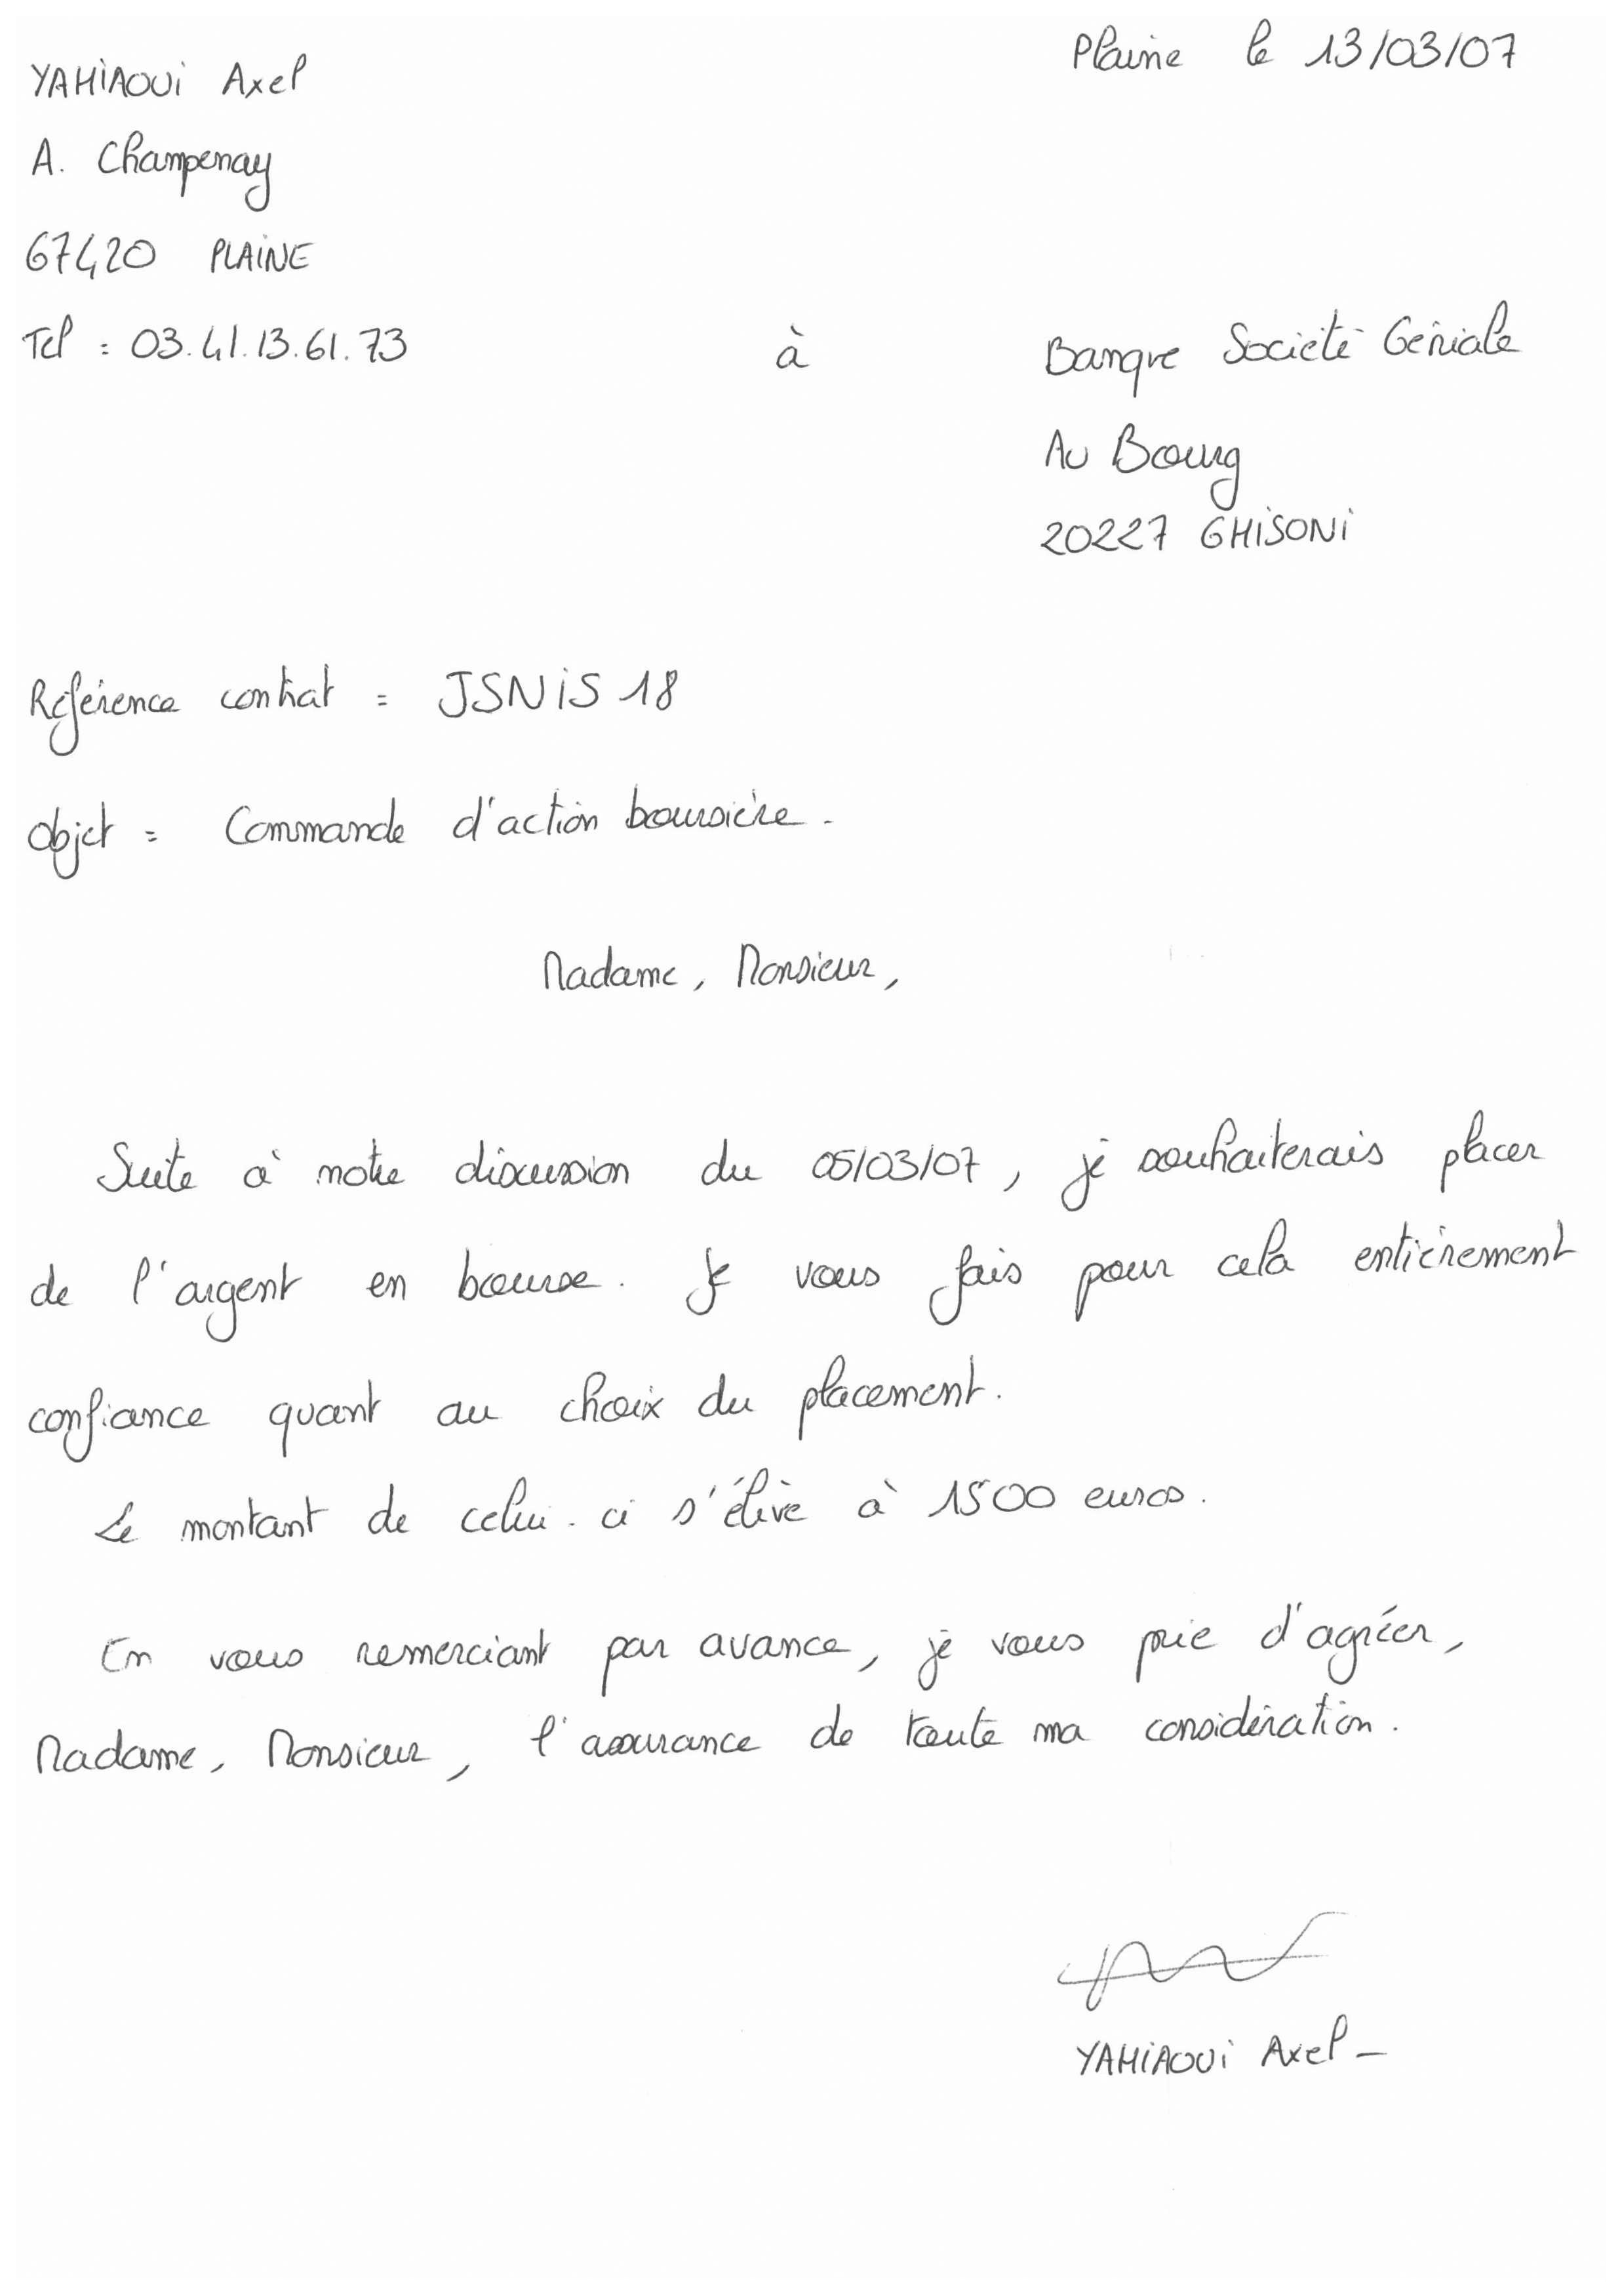 YAHiAOUi Axel
Plaine le 13/03/07
A. Champenay
67420 PLAiNE
Tel : 03.41.13.61.73
à
Banque Société Géniale
Au Bourg
20227 GHiSONi
Référence contrat = JSNiS 18
Objet = Commande d'action boursière.
Madame, Monsieur,
Suite à notre discussion du 05/03/07, je souhaiterais placer
de l'argent en bourse. Je vous fais pour cela entièrement
confiance quant au choix du placement.
Le montant de celui-ci s'élève à 1500 euros.
En vous remerciant par avance, je vous prie d'agréer,
Madame, Monsieur, l'assurance de toute ma considération.
YAHiAOUi Axel -